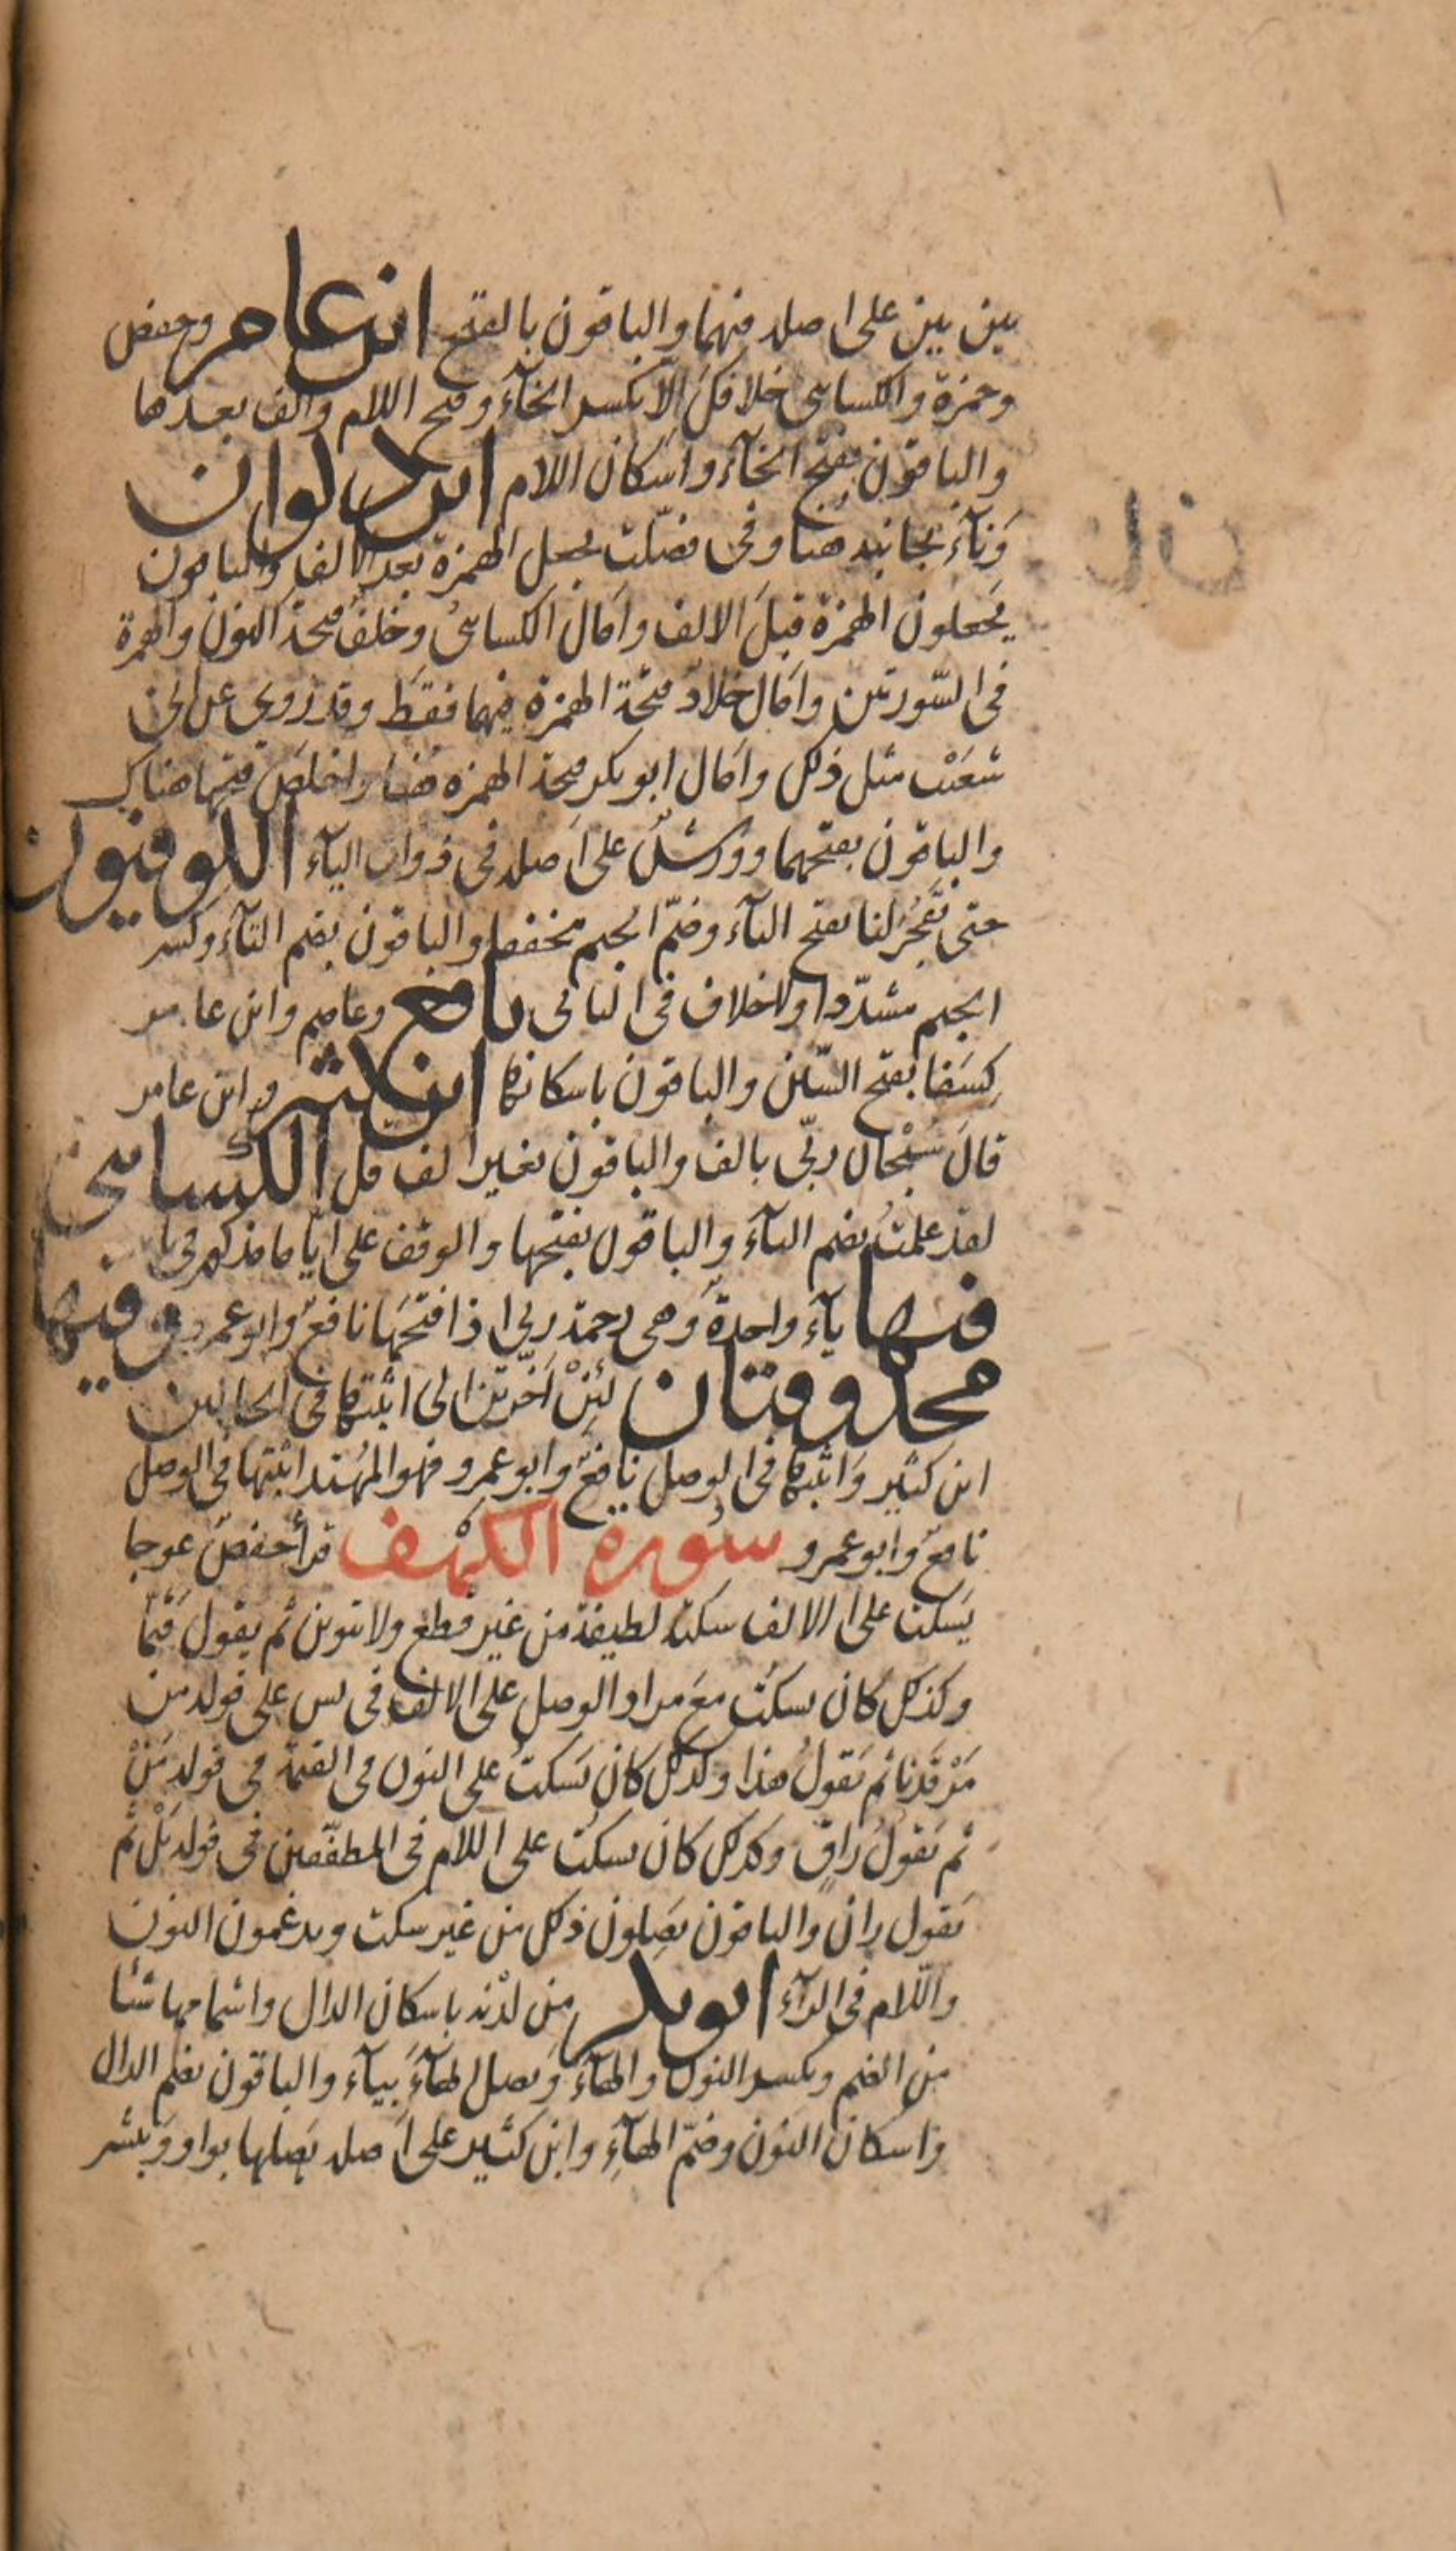 بين بين على اصله فيهما والباقون بالفتح ابن عامر وحفص
وحمزة والكسائى خلافك الّا بكسر الخآء وفتح اللام والف بعدها
والباقون بفتح الخآء واسكان اللام ابن ذكوان
وَنآءَ بجانبه هنا وفى فصّلت يجعل الهمزة بعد الالف والباقون
يَجعلون الهمزة قبلَ الالف وامَال الكسائىُ وخلفٌ فتحة النون والهمزة
فى السّورتين وامَال خلادٌ فتحة الهمزة فيهما فقط وقد رُوي عن ابى
شعَيْب مثل ذلك وامَال ابو بكر فتحة الهمزه هنا واخلصَ فتحها هناك
والباقون بفتحهما وورشٌ على اَصله فى ذوات اليآء الكوفيون
حتى تَفْجُرَ لنا بفتح التآء وضمّ الجيم مخففا والباقون بضم التآء وكسر
الجيم مشدّدا ولاخلاف فى الثانى نافع وعاصم وابن عامر
كِسَفا بفتح السّين والباقون باسكانها ابن كثير وابن عامر
قالَ سُبْحان ربّى بالف والباقون بغير الف قل الكسائى
لقد علمتُ بضم التآء والباقون بفتحها والوقف على ايّا ما مذكور فى بابه
فيها يآء واحدةٌ وهى رحمة ربى اذا فتحَهَا نافعٌ وابو عمرو وفيها
محذوفتان لَئِنْ اَخّرتن الى اثبتها فى الحالين
ابن كثير وَاثبتها فى الوصل نافعٌ وابو عمرو فهو المُهتد اثبتها فى الوصل
نافعٌ وابو عمرو سُورة الكهْف قرأ حفصٌ عوجا
يَسكت على الالف سكتة لطيفة من غير قطع ولا تنوين ثم يقول قَيّمًا
وكذلك كان يسكُت معَ مراد الوصل على الالف فى يس على قوله من
مَرْقَدِنا ثم يَقولُ هذا وكذلك كان يَسكتُ على النون فى القيمة فى قوله مَنْ
ثم يَقولُ راقٍ وكذلك كان يسكُت على اللام فى المطفّفين فى قوله بَلْ ثم
يَقول رانَ والباقون يَصِلون ذلك من غير سكت ويدغمون النون
واللام فى الرآء ابو بكر من لدْنه باسكان الدال واشمامها شئا
من الضم وبكسر النون والهآء وَيصل الهآءَ بيآء والباقون بضم الدال
واسكان النون وضمّ الهآءِ وابن كثير على اَصله يَصلها بواو وَيبشر